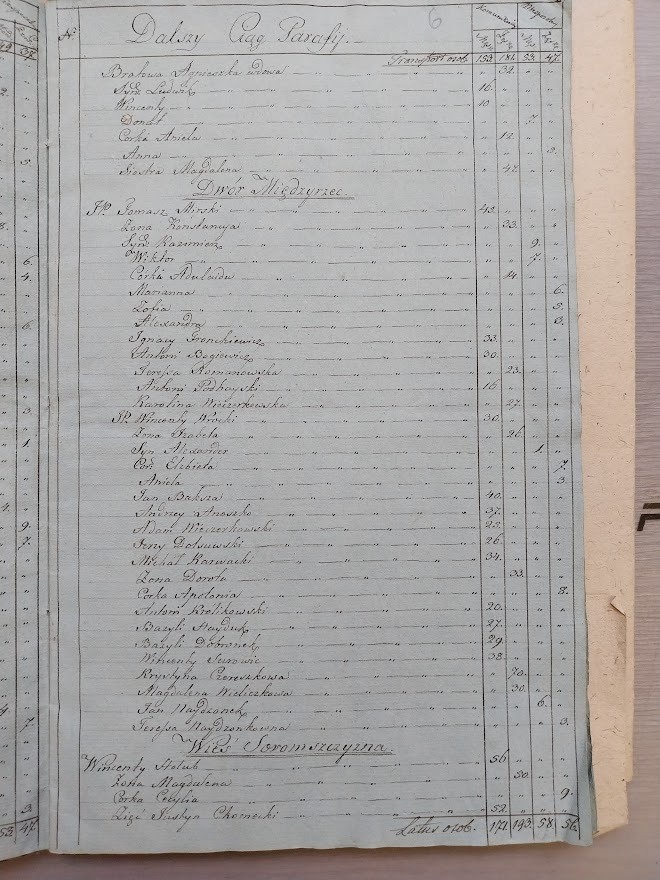 No. Dalszy Ciąg Parafij. 6
Transport osob. 153. 181. 53. 47.
Agnieszka wdowa 32.
Syn Ludwik 16.
Wincenty 10
Donat 7.
Corka Aniela 12.
Anna 3.
Siostra Magdalena 47.
Dwór Międzyrzec.
JP. Tomasz Mirski 43.
Zona Konstancya 33.
Syn Kazimierz 9.
Wiktor 7.
Corka Adelaida 14
Marianna 6.
Zofia 5.
Alexandra 3.
Ignacy 33.
Antoni Bogiewicz 30.
Teressa Romanowska 23.
Antoni Podhayski 16
Karolina Wieczerkowska 27.
JP. Wincenty 30.
Zona Izabela 26
Syn Alexander 1.
Cor. Elżbieta 7.
Aniela 3.
Jan Baksza 40.
Andrzey 37.
Adam Wieczerkowski 25.
Jerzy 26.
Michał Karwacki 34.
Zona Dorota 33.
Corka Apolonia 8.
Antoni Krolikowski 20.
Bazyli Hayduk 27.
Bazyli Dobronek 29
Wincenty 38.
Krystyna Czereszkowa 70.
Magdalena Wieliczkowa 30.
Jan 6.
Teressa 3.
Wieś Soromszczyzna.
Wincenty Holub 56
Zona Magdalena 50.
Corka Cecylia 9.
Zięć Justyn Chomecki 52.
Latus osob. 171. 193. 58. 56.